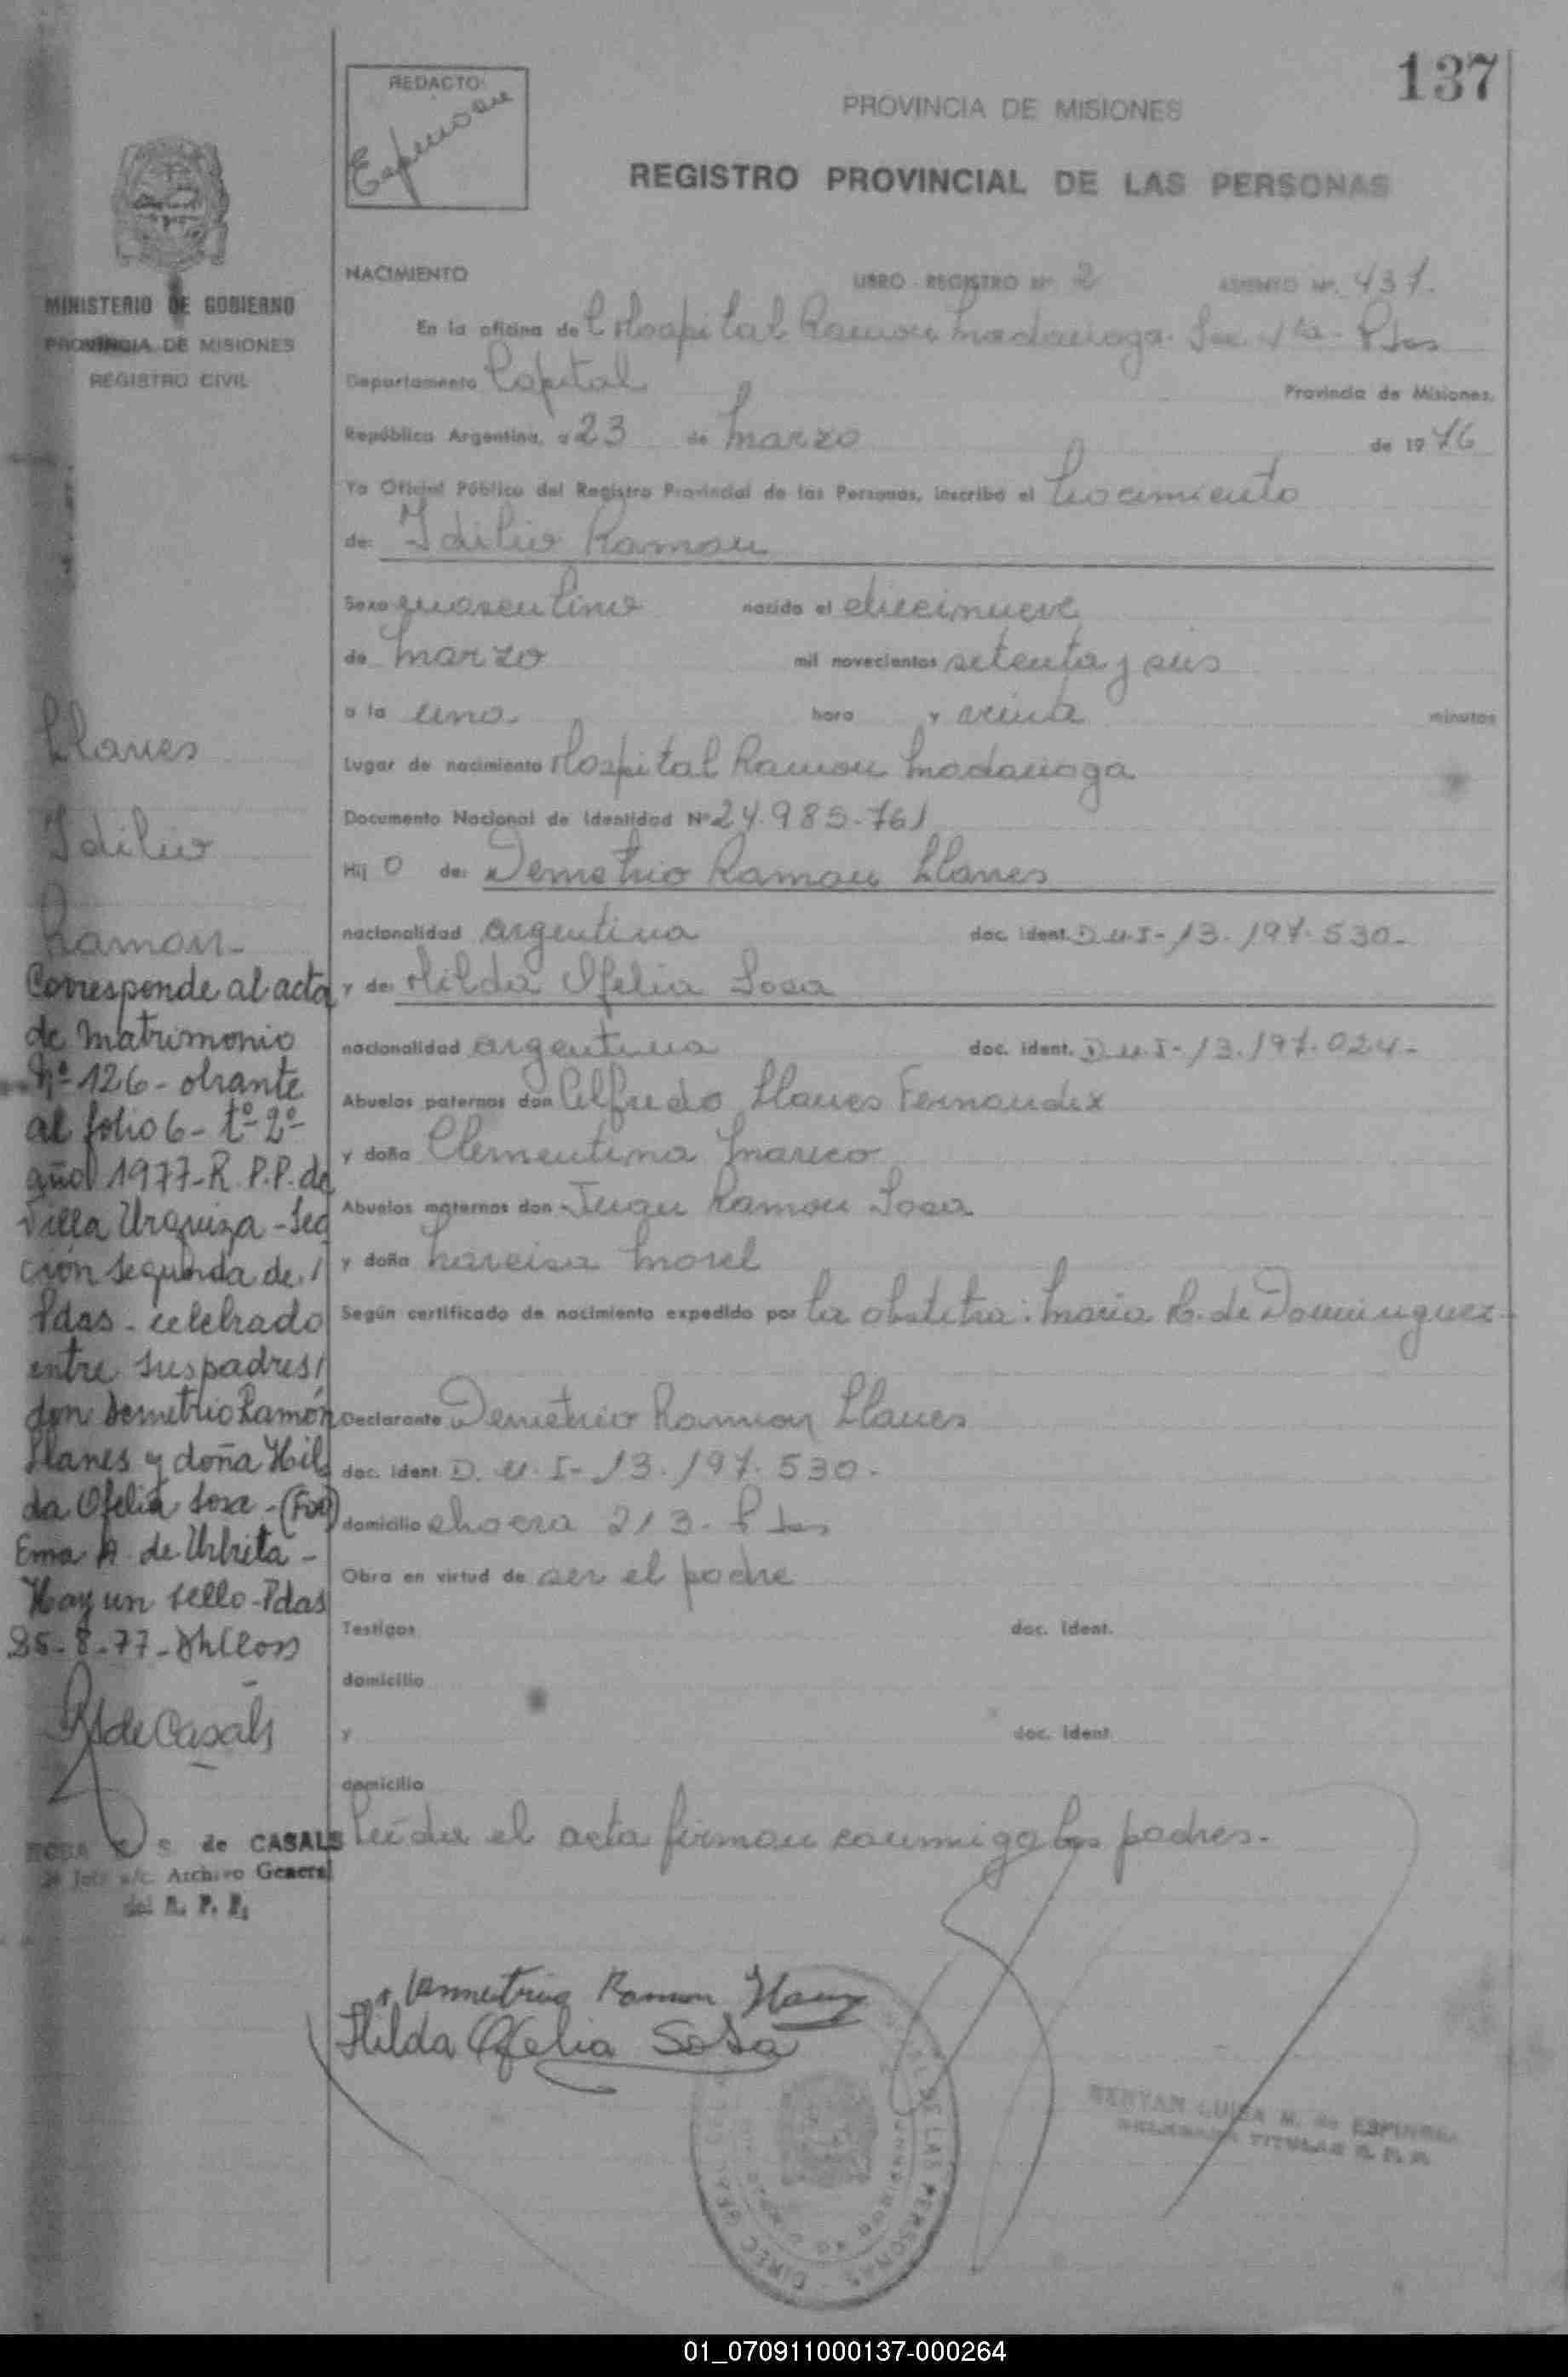 137
REDACTO:
PROVINCIA DE MISIONES
REGISTRO PROVINCIAL DE LAS PERSONAS
MINISTERIO DE GOBIERNO
PROVINCIA DE MISIONES
REGISTRO CIVIL
NACIMIENTO LIBRO - REGISTRO Nº 2 ASIENTO Nº 437.
En la oficina de Hospital Ramon Madariaga. Sec Pdas
Departamento Capital Provincia de Misiones.
República Argentina, a 23 de Marzo de 1976
Yo Oficial Público del Registro Provincial de las Personas, inscribo el Nacimiento
de: Idilio Ramon
Sexo masculino nacido el diecinueve
de Marzo mil novecientos setenta y seis
a la una hora y minutos
Lugar de nacimiento Hospital Ramon Madariaga
Documento Nacional de Identidad Nº 24.985.761
Hij o de: Demetrio Ramon Llanes
nacionalidad argentina doc. ident. D.U.I-13.197.530-
y de: Hilda Ofelia Sosa
nacionalidad argentina doc. ident. D.U.I-13.197.024-
Abuelos paternos don Alfredo Llanes Fernandez
y doña Clementina Mareco
Abuelos maternos don Juan Ramon Sosa
y doña Narcisa Morel
Según certificado de nacimiento expedido por la obstetra: Maria R. de Dominguez-
Declarante Demetrio Ramon Llanes
doc. ident D.U.I-13.197.530-
domicilio chacra 213- Pdas
Obra en virtud de ser el padre
Testigos doc. ident.
domicilio
y doc. ident.
domicilio
Leída el acta firman conmigo los padres.-
Demetrio Ramon Llanes
Hilda Ofelia Sosa
Llanes
Idilio
Ramon-
Corresponde al acta
de Matrimonio
Nº 126- obrante
al folio 6- tº 2º
año 1977-R.P.P. de
Villa Urquiza-Sec
ción Segunda de/
Pdas- celebrado
entre sus padres/
don Demetrio Ramón
Llanes y doña Hil
da Ofelia Sosa-(Fdo)
Ema A. de Urbieta-
Hay un sello-Pdas
25-8-77-
de Casals
ROSA de CASALS
Archivo General
del R. P. P.
DE LAS PERSONAS
LUISA M. de ESPINOSA
TITULAR R. P. P.
01_070911000137-000264